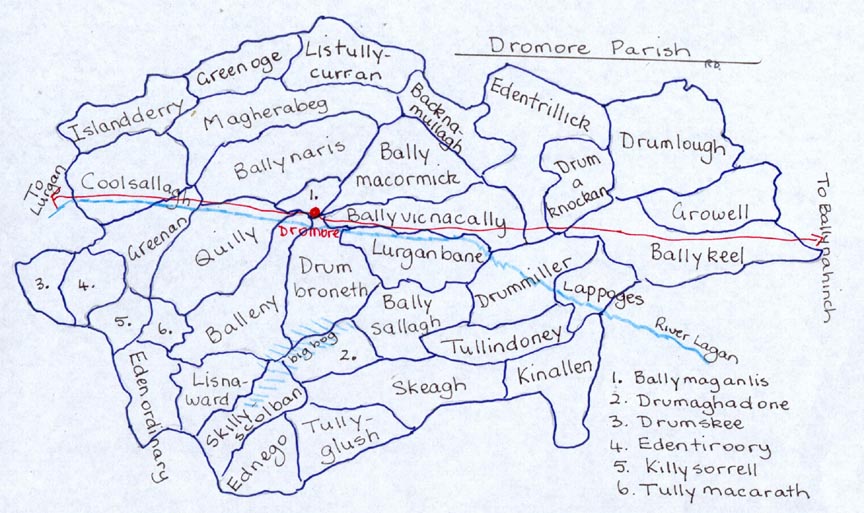 Dromore Parish
RD.
Listully-
curran
Greenoge
Islandderry
Magherabeg
Backna-
mullagh
Edentrillick
Drumlough
Ballynaris
Bally
macormick
Drum
a
knockan
To
Lurgan
Coolsallagh
1.
Ballyvicnacally
Growell
To Ballynahinch
Dromore
Greenan
Quilly
Lurganbane
Ballykeel
3.
4.
Drum
broneth
Drummiller
Lappoges
5.
6.
Balleny
Bally
sallagh
River Lagan
big bog
2.
Tullindoney
Edenordinary
Lisna-
ward
Skeagh
Kinallen
Skilly
scolban
Tully-
glush
Ednego
1. Ballymaganlis
2. Drumaghadone
3. Drumskee
4. Edentiroory
5. Killysorrell
6. Tullymacarath